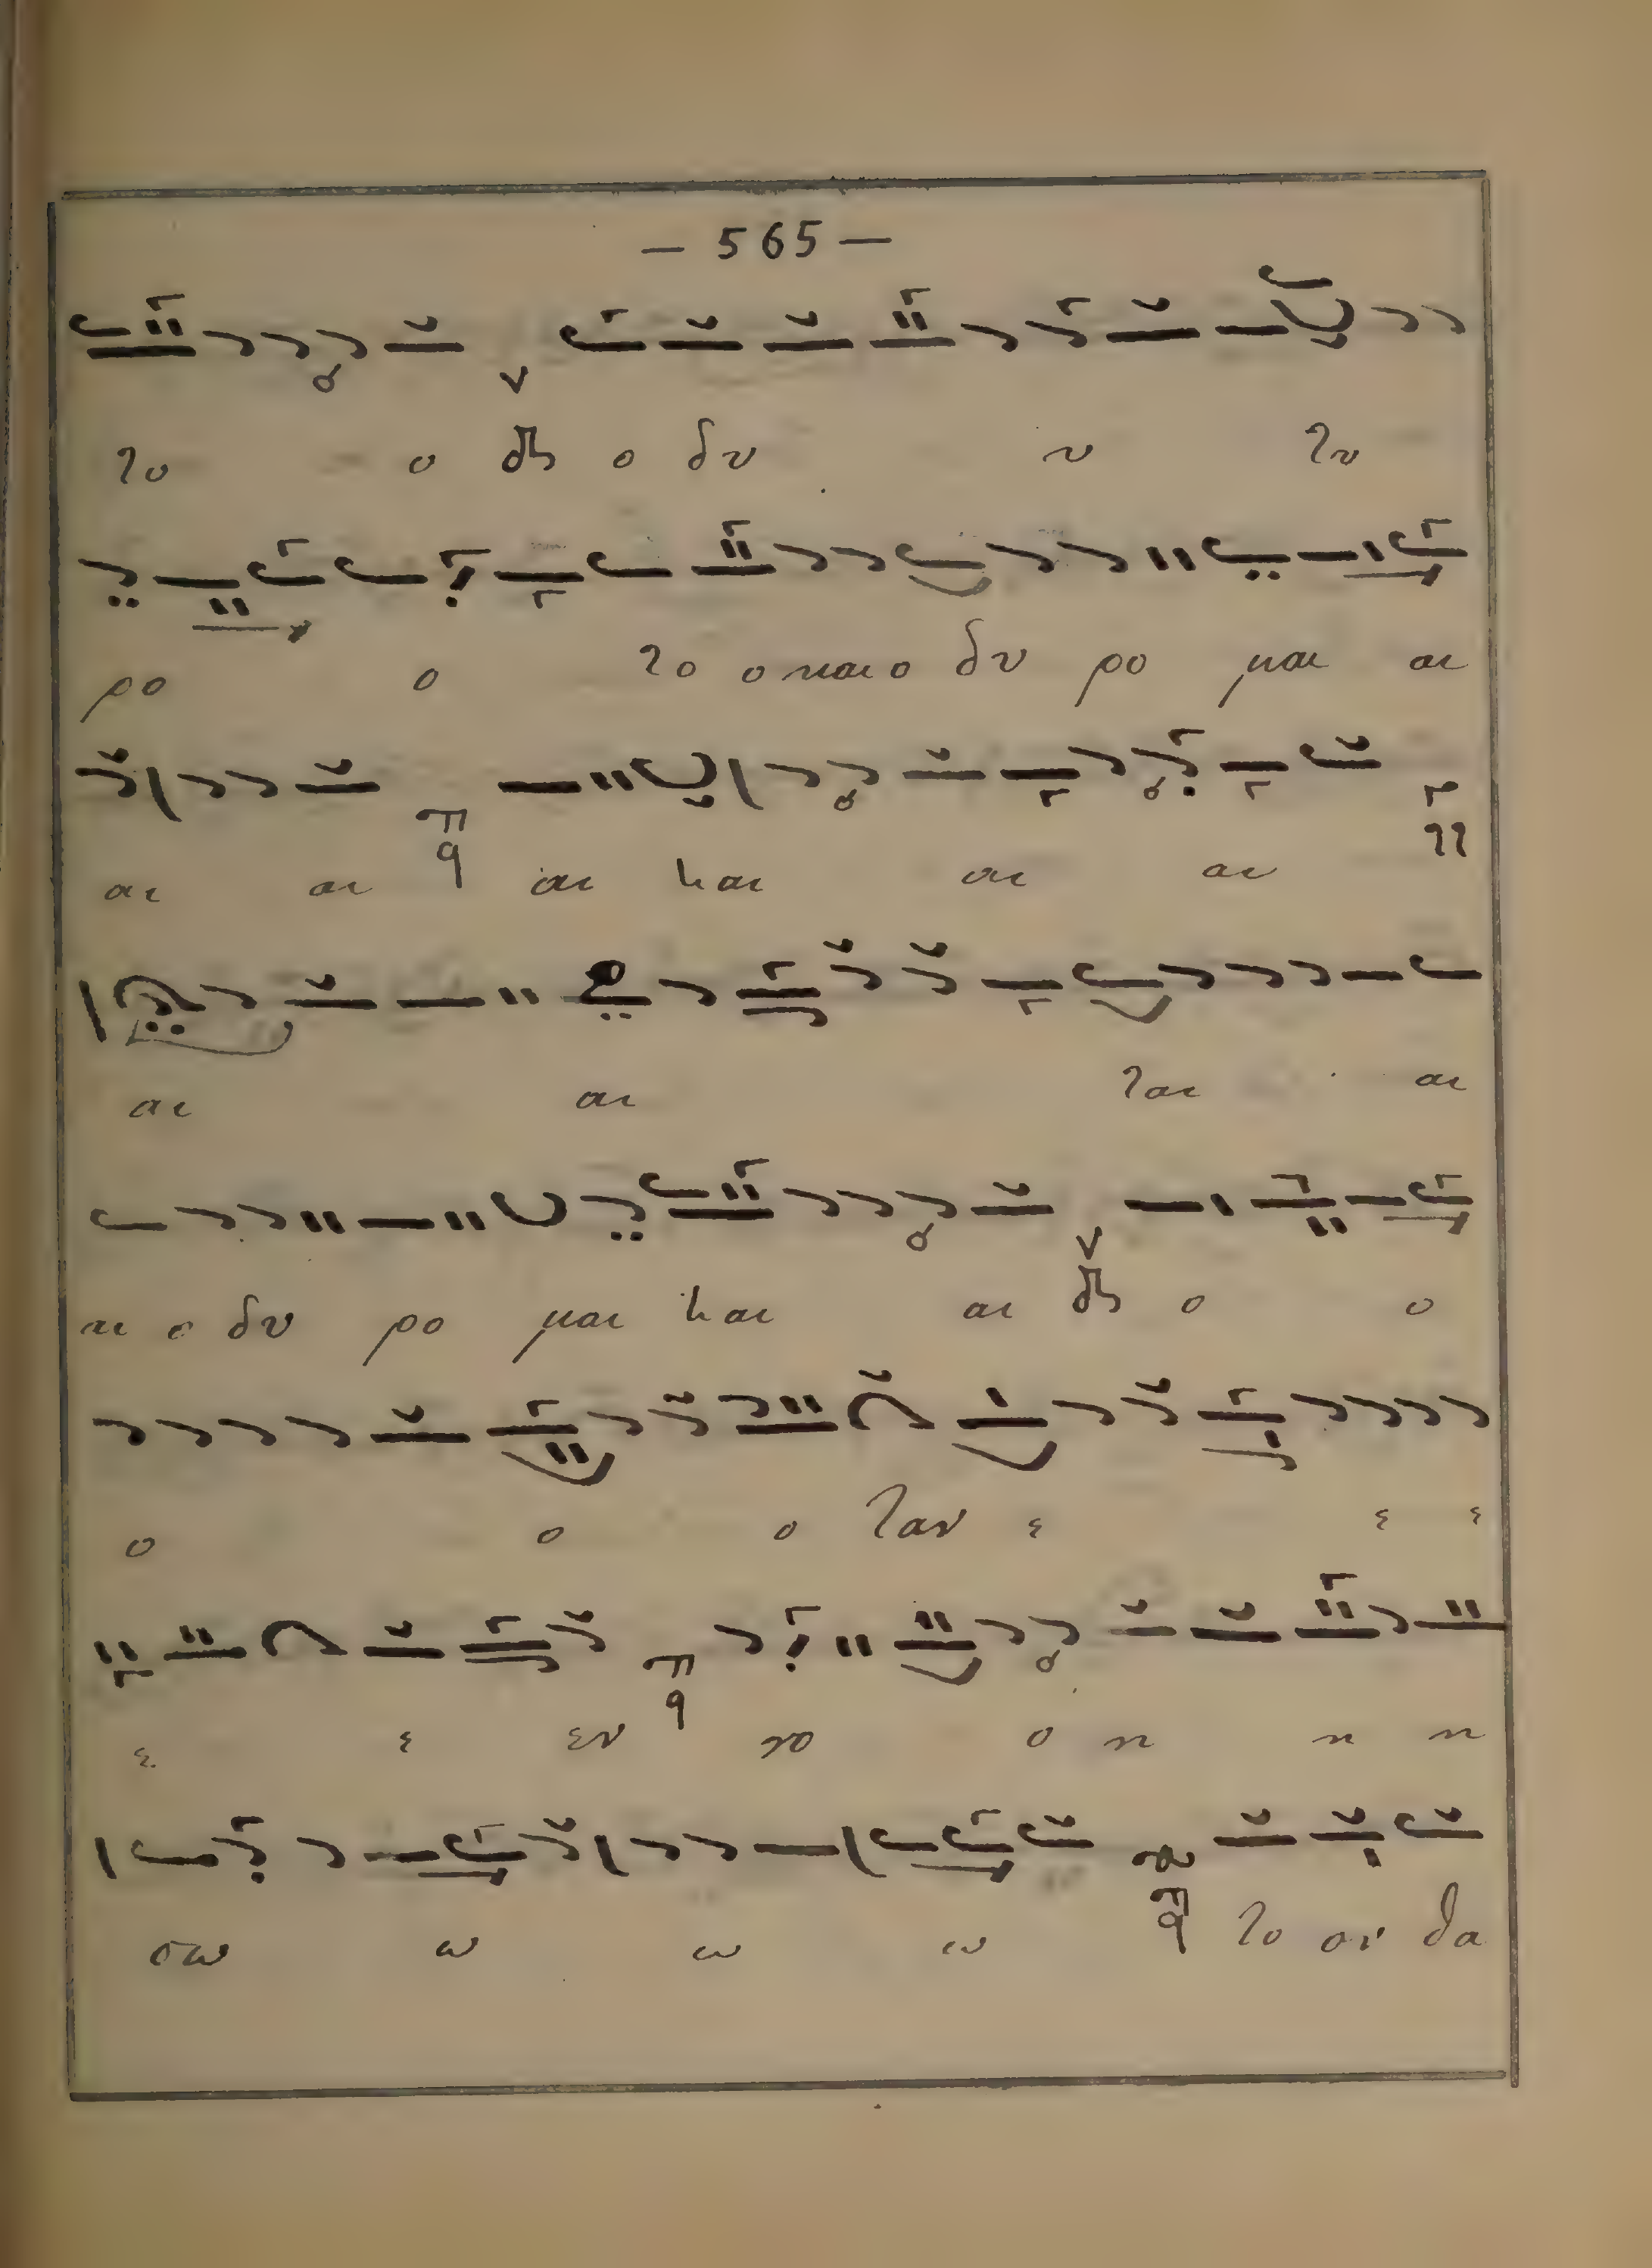 — 565 —
το ο δι ο δυ υ τυ
ρο ο το ο και ο δυ ρο μαι αι
αι αι q αι και αι αι
αι αι ται αι
αι ο δυ ρο μαι και αι δι ο ο
ο ο ο ταν ε ε ε
ε ε εν νο ο η η η
σω ω ω ω q το ον θα